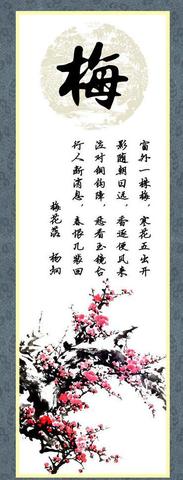 梅
窗外一株梅，寒花五出开
影随朝日远，香逐便风来
泣对铜钩障，愁看玉镜台
行人断消息，春恨几裴回
梅花落 杨炯